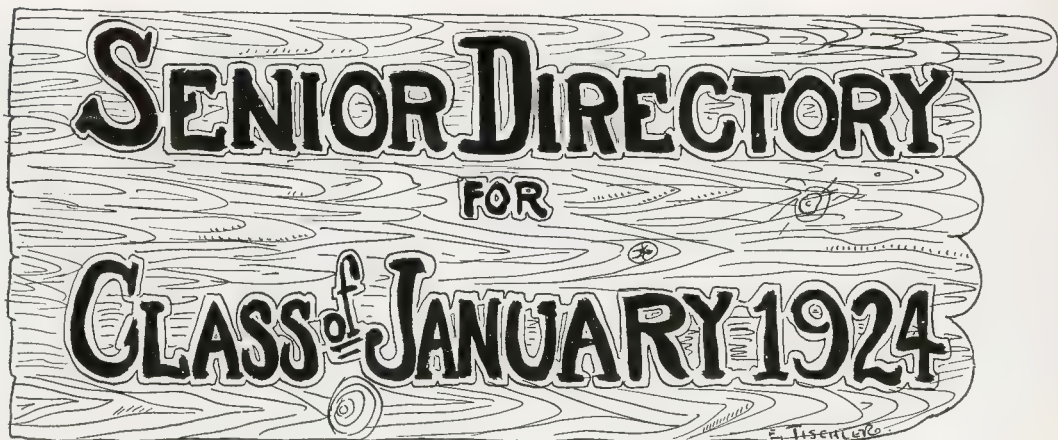 SENIOR DIRECTORY
FOR
CLASS of JANUARY 1924
E. TISCHLER.